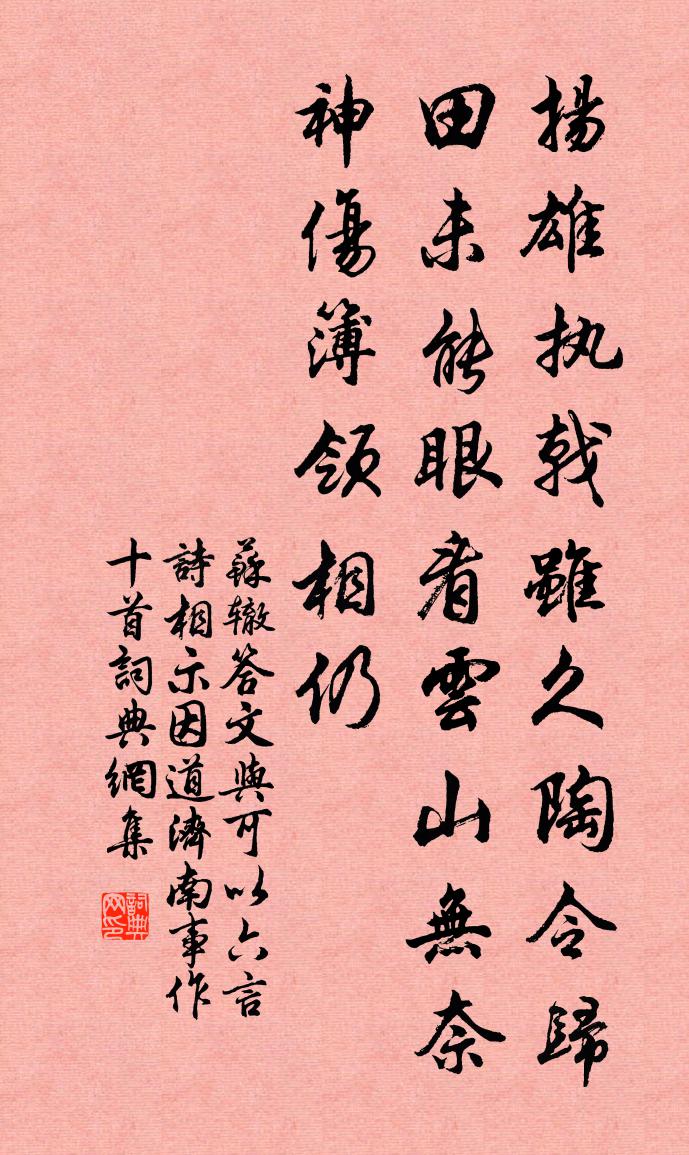 揚雄执戟雖久陶令歸
田未能眼看雲山無奈
神傷簿領相仍
蘇辙答文與可以六言
詩相示因道濟南事作
十首詞典網集
詞典网印